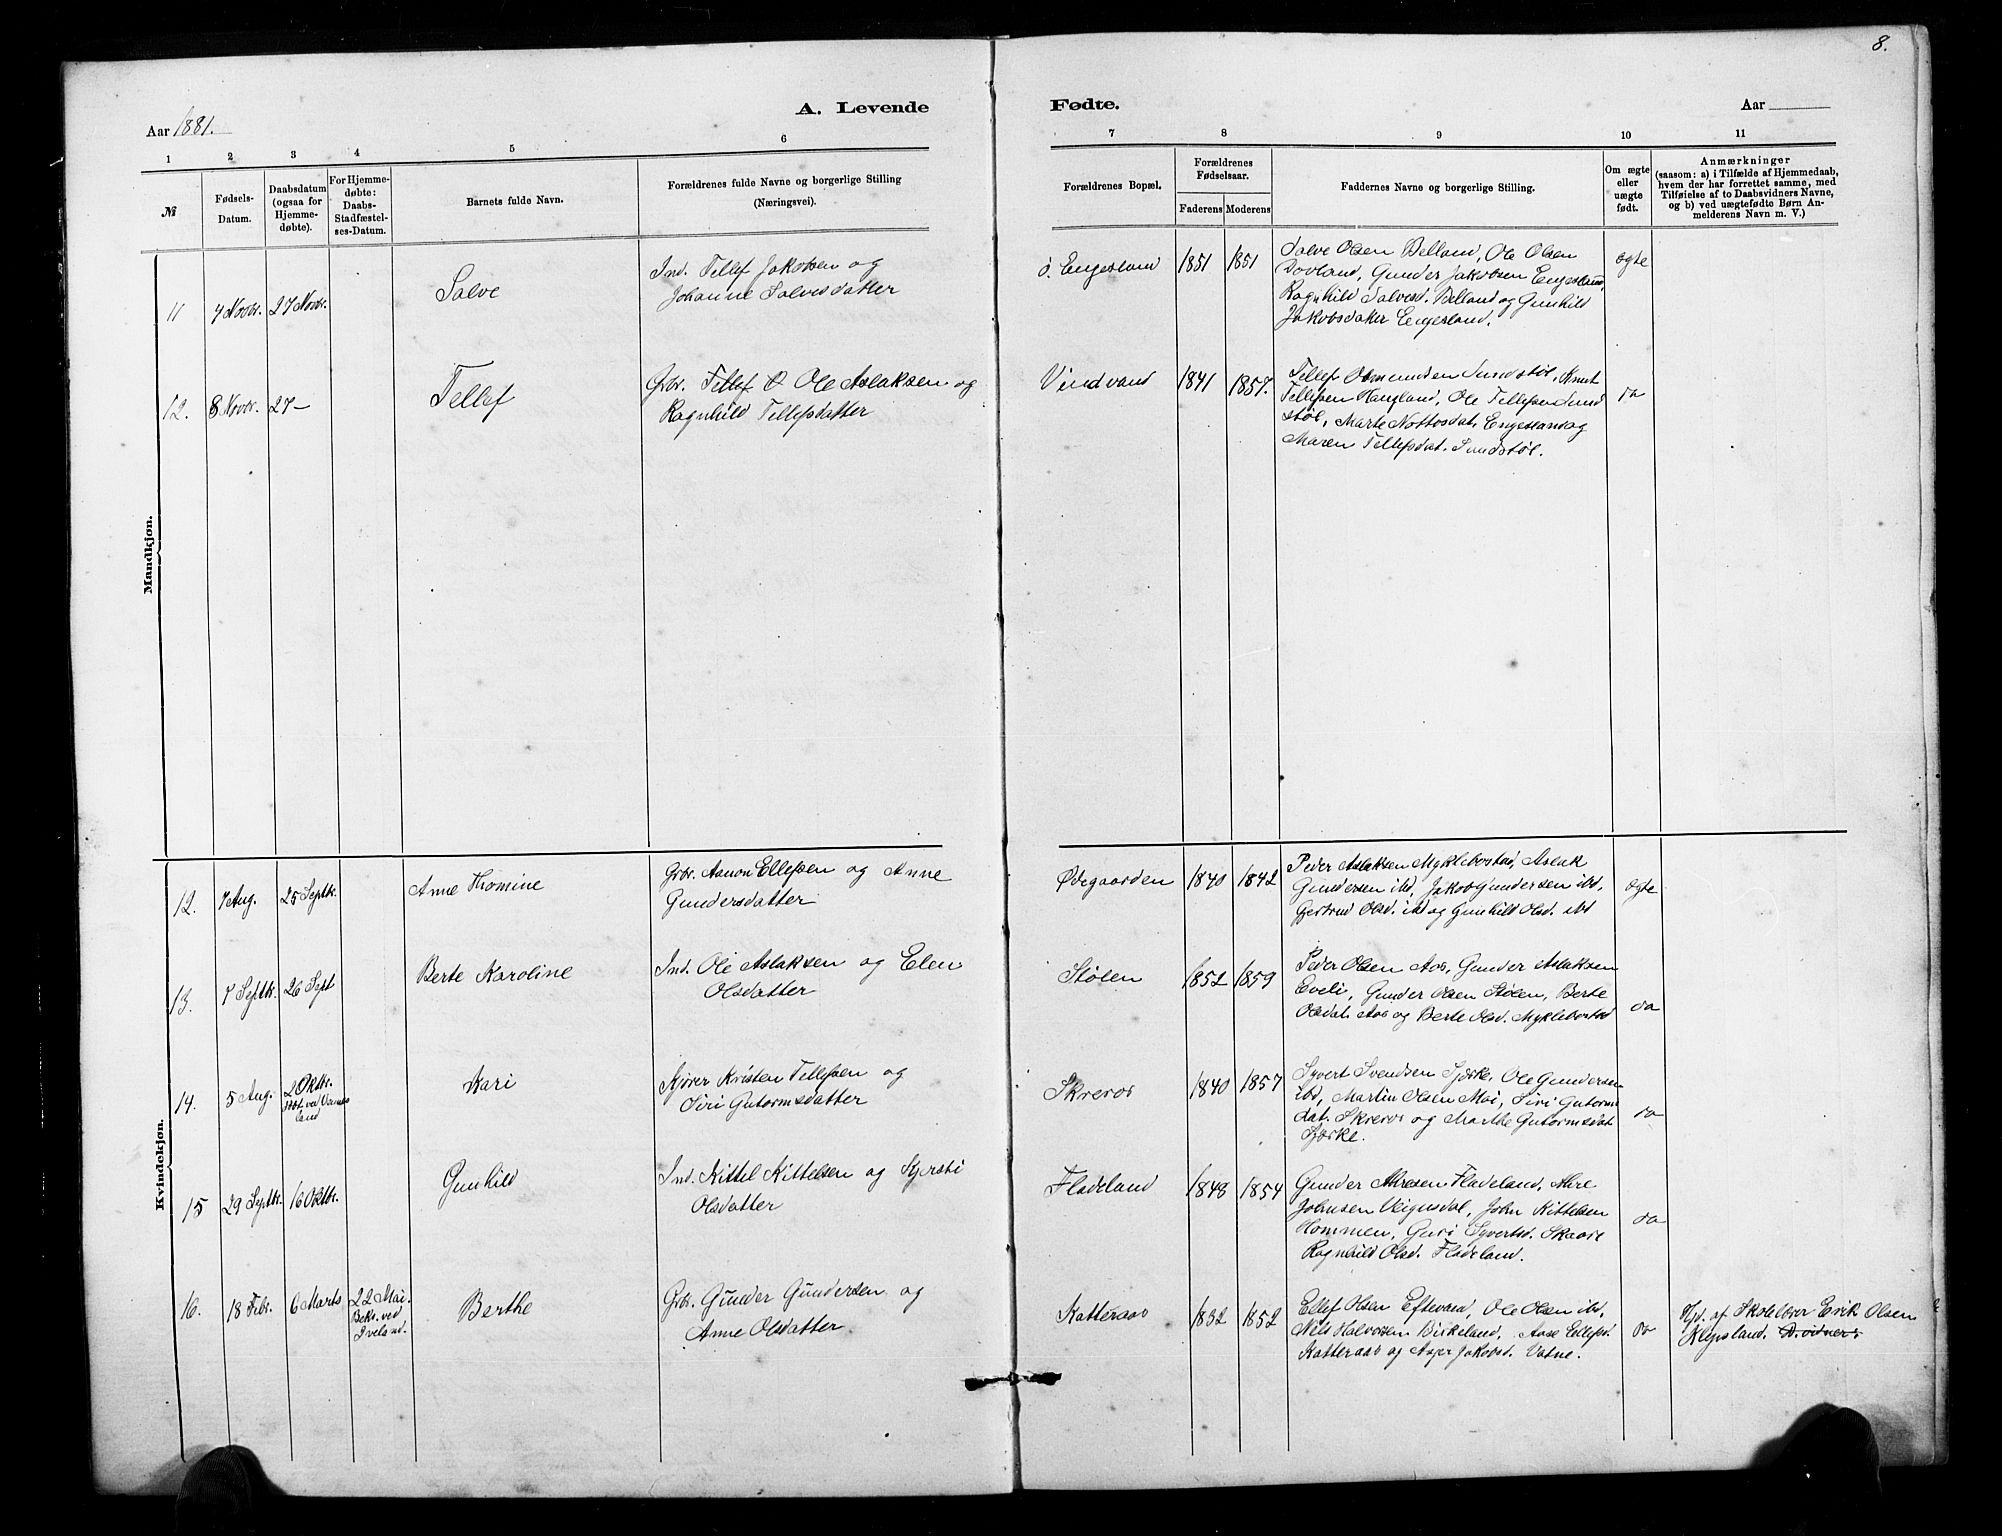 8.
A. Levende Fødte.
Aar 1881. Aar
1 2 3 4 5 6 7 8 9 10 11
№
Fødsels-
Datum.
Daabsdatum
(ogsaa for
Hjemme-
døbte).
For Hjemme-
døbte:
Daabs-
Stadfæstel-
ses-Datum.
Barnets fulde Navn.
Forældrenes fulde Navne og borgerlige Stilling
(Næringsvei).
Forældrenes Bopæl.
Forældrenes
Fødselsaar.
Faderens Moderens
Faddernes Navne og borgerlige Stilling.
Om ægte
eller
uægte
født.
Anmærkninger
(saasom: a) i Tilfælde af Hjemmedaab,
hvem der har forrettet samme, med
Tilføielse af to Daabsvidners Navne,
og b) ved uægtefødte Børn An-
melderens Navn m. V.)
Mandkjøn.
11 4 Novbr. 27 Novbr.
Salve
Ind. Tellef Jakobsen og
Johanne Salvesdatter
ö. Engesland 1851 1851
Salve Olsen Belland, Ole Olsen
Dovland, Gunder Jakobsen Engesland,
Ragnhild Salvesd. Belland og Gunhild
Jakobsdatter Engesland.
ægte
12. 8 Novbr. 27 –
Tellef
Grbr. Tellef O Ole Aslaksen og
Ragnhild Tellefsdatter
Vindvand 1841 1857.
Tellef Osmundsen Sundstøl, Knut
Tellefsen Haugland, Ole Tellefsen Sund
støl, Marte Nottosdat. Engesland og
Maren Tellefsdat. Sundstøl.
do
Kvindekjøn.
12. 7 Aug. 25 Septbr.
Anne Thomine
Grbr. Aanon Ellefsen og Anne
Gundersdatter
Ødegaarden 1840 1842
Peder Aslaksen Myklebostad, Aslak
Gundersen ibd, Jakob Gundersen ibd,
Gjertrud Olsd. ibd og Gunhild Olsd. ibd
ægte
13. 7 Septbr. 26 Sept
Berte Karoline
Ind. Ole Aslaksen og Elen
Olsdatter
Stølen 1852 1859
Peder Olsen Aas, Gunder Aslaksen
Eveli, Gunder Olsen Stølen, Berte
Olsdat. Aas og Berte Olsd. Myklebostad
do
14. 5 Aug. 2 Oktbr.
Kari
Kjører Kristen Tellefsen og
Siri Gutormsdatter
Skreros 1840 1857
Syvert Svendsen Tjørke, Ole Gundersen
ibd, Martin Olsen Moi, Siri Gutorms
dat. Skreros og Marthe Gutormsdat
Tjørke.
do
15 29 Septbr. 16 Oktbr.
Gunhild
Ind. Kittel Kittelsen og Kjersti
Olsdatter
Fladeland 1848 1854
Gunder Aresen Fladeland, Are
Johnsen Vegusdal, John Kittelsen
Hommen, Guri Syvertsd. Skaare
Ragnhild Olsd. Fladeland.
do
16. 18 Febr. 6 Marts 22 Mai.
Bekr. ved
Iveland.
Berthe
Grbr. Gunder Gundersen og
Anne Olsdatter
Katteraas 1832 1852
Ellef Olsen Eftevand, Ole Olsen ibd,
Nils Halvorsen Birkeland, Aase Ellefsd.
Katteraas og Asger Jakobsd. Vatne.
do
Hjd. af Skolelærer Erik Olsen
Klepsland.